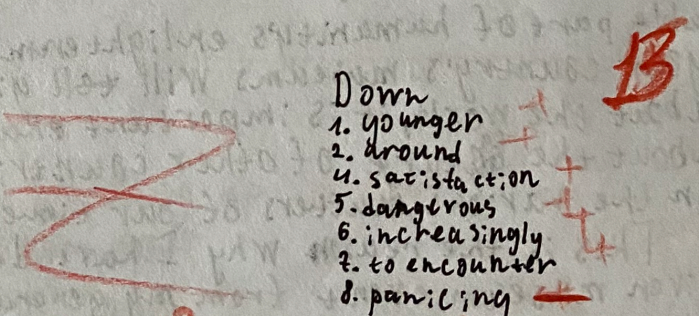 13
Down
1. younger
2. around
4. satistaction
5. dangerous
6. increasingly
7. to encounter
8. panicing